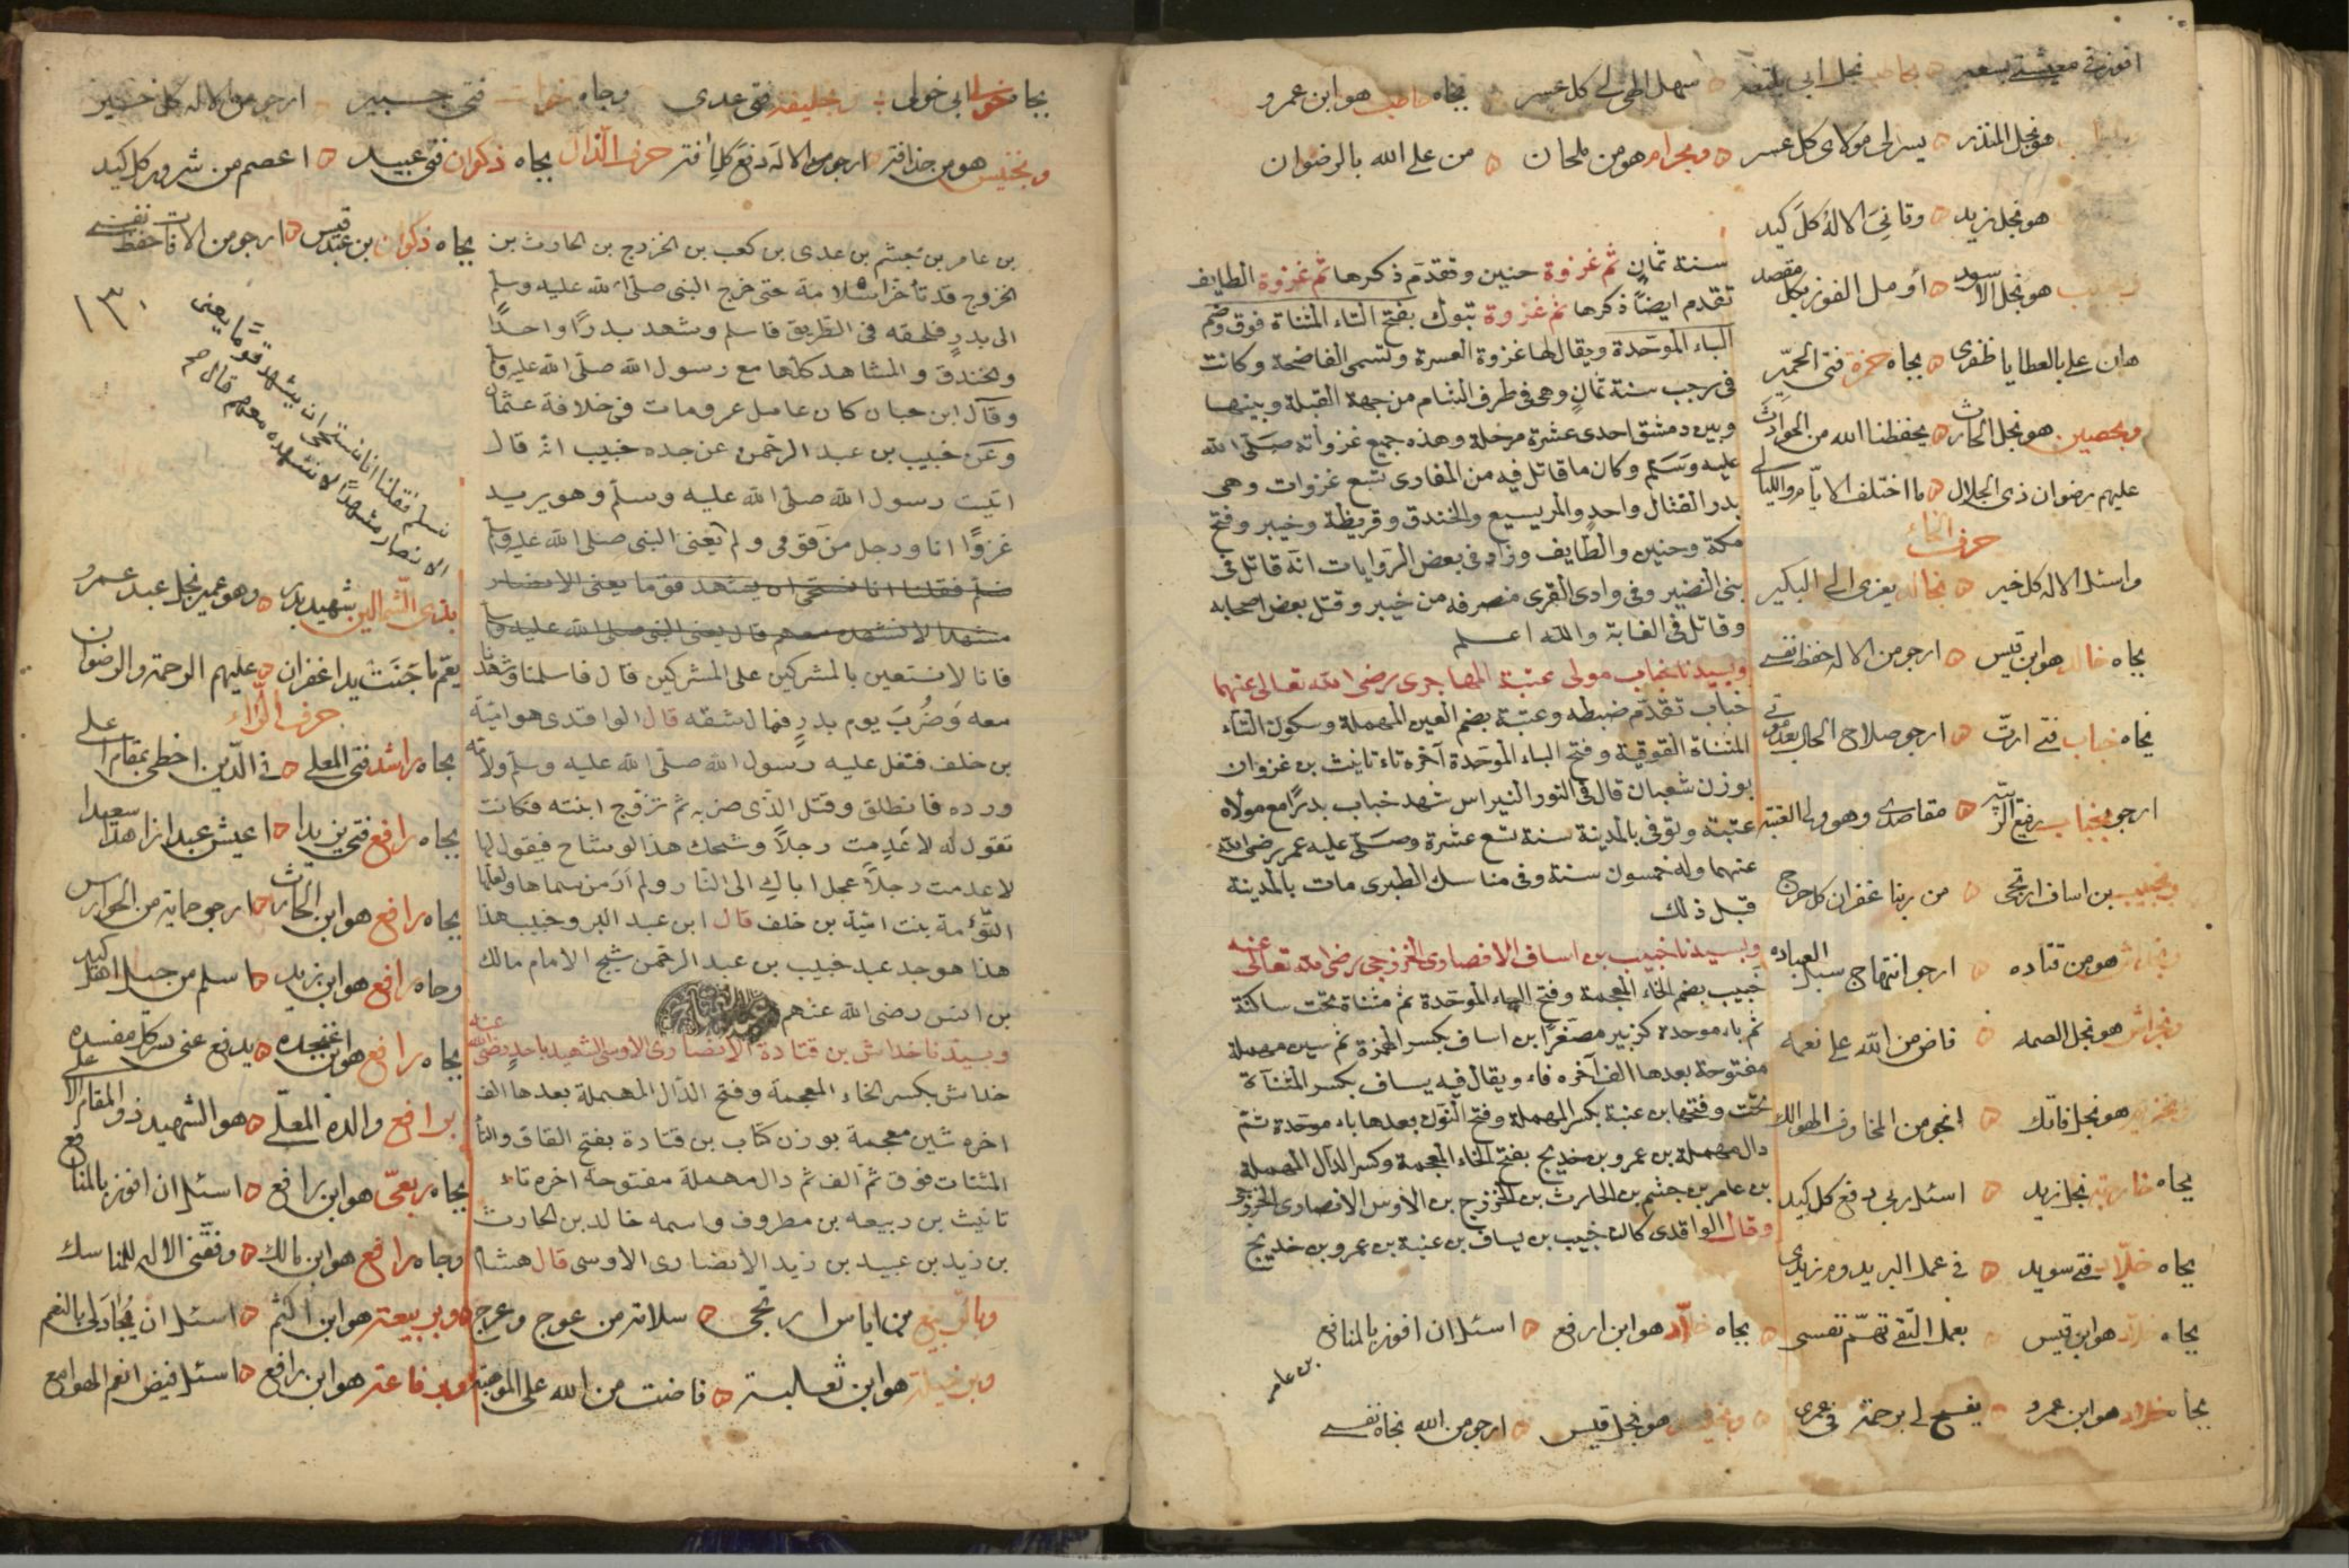 افوز في معيشتي بسعد ه بحاطب نجل ابي بلتعه ه سهل الهي لي كل عسر ه بجاه حاطب هو ابن عمرو
هو نجل المنذر ه يسر لي مولاى كل عسر ه وبحرام هو من ملحان ه من على الله بالرضوان
هو نجل زيد ه وقانى الاله كل كيد
هو نجل الاسود ه أومل الفوز بكل مقصد
هان على بالعطايا ظفرى ه بجاه حمزة فتى الحميّر
وبحصين هو نجل الحارث ه يحفظنا الله من الحوادث
عليهم رضوان ذى الجلال ه ما اختلف الايام والليالى
حرف الخاء
واسئل الاله كل خير ه بخالد يعزى الى البكير
بجاه خالد هو ابن قيس ه ارجو من الاله حفظ نفسى
بجاه خباب فتى ارت ه ارجو صلاح الحال بعد موتى
ارجو بخباب رفيع الرتبه ه مقاصدى وهو ولى العتبه
وبخبيب بن اساف ارتجى ه من ربنا غفران كل حرج
هو من قتاده ه ارجو انتهاج سبل العباده
وبخراش هو نجل الصمه ه فاض من الله على نعمه
هو نجل فاتك ه انجو من المخاوف المهوالك
بجاه خارجة نجل زيد ه اسئل ربى دفع كل كيد
بجاه خلاد فتى سويد ه فى عمل البر يدوم زيدى
بجاه خلاد هو ابن قيس ه بعمل التقى تهتم نفسى ه بجاه خلاد هو ابن رافع ه اسئل ان افوز بالمنافع
بجاه خلاد هو ابن عمرو ه يفسح لى برحمة فى عمرى ه هو نجل قيس ه ارجو من الله نجاة نفسى
بن عامر
سنة ثمانٍ ثم غزوة حنين وتقدم ذكرها ثم غزوة الطايف
تقدم ايضاً ذكرها ثم غزوة تبوك بفتح التاء المثناة فوق وضم
الباء الموحدة ويقال لها غزوة العسرة وتسمى الفاضحة وكانت
فى رجب سنة ثمانٍ وهى فى طرف الشام من جهة القبلة وبينها
وبين دمشق احدى عشرة مرحلة وهذه جميع غزواته صلى الله
عليه وسلم وكان ما قاتل فيه من المغازى تسع غزوات وهى
بدر القتال واحد والمريسيع والخندق وقريظة وخيبر وفتح
مكة وحنين والطايف وزاد فى بعض الروايات انه قاتل فى
بنى النضير وفى وادى القرى منصرفه من خيبر وقتل بعض اصحابه
وقاتل فى الغابة والله اعلم
وبسيدنا خباب مولى عتبة المهاجرى رضى الله تعالى عنهما
خباب تقدم ضبطه وعتبة بضم العين المهملة وسكون التاء
المثناة الفوقية وفتح الباء الموحدة آخره تاء تانيث بن غزوان
بوزن شعبان قال فى النور النبراس شهد خباب بدرًا مع مولاه
عتبة وتوفى بالمدينة سنة تسع عشرة وصلى عليه عمر رضى الله
عنهما وله خمسون سنة وفى مناسك الطبرى مات بالمدينة
قبل ذلك
وبسيدنا خبيب بن اساف الانصارى الخزرجى رضى الله تعالى عنه
خبيب بضم الخاء المعجمة وفتح الباء الموحدة ثم مثناة تحت ساكنة
ثم باء موحدة كزبير مصغرًا بن اساف بكسر الهمزة ثم سين مهملة
مفتوحة بعدها الف آخره فاء ويقال فيه يساف بكسر المثناة
تحت وفتحها بن عنبة بكسر المهملة وفتح النون بعدها باء موحدة ثم
دال مهملة بن عمرو بن خديج بفتح الخاء المعجمة وكسر الدال المهملة
بن عامر بن جشم بن الحارث بن الخزرج بن الاوس الانصارى الخزرجى
وقال الواقدى كان خبيب بن يساف بن عنبة بن عمرو بن خديج
بجاه خولى ابى خولى ه بخليفة فتى عدى وجاه خوات فتى جبير ه ارجو من الاله كل خير
وبخنيس هو من حذافه ه ارجو من الاله دفع كل آفة حرف الذال بجاه ذكوان فتى عبيد ه اعصم من شرور كل كيد
بجاه ذكوان بن عبد قيس ه ارجو من الافات حفظ نفسى
١٣٠
بن عامر بن جشم بن عدى بن كعب بن الخزرج بن الحارث بن
الخزرج قد تأخر اسلامه حتى خرج النبى صلى الله عليه وسلم
الى بدرٍ فلحقه فى الطريق فاسلم وشهد بدرًا واحدًا
والخندق والمشاهد كلها مع رسول الله صلى الله عليه وسلم
وقال ابن حبان كان عامل عمر ومات فى خلافة عثمان
وعن خبيب بن عبد الرحمن عن جده خبيب انه قال
اتيت رسول الله صلى الله عليه وسلم وهو يريد
غزوًا انا ورجل من قومى ولم يعنى النبى صلى الله عليه وسلم
نسلم فقلنا انا نستحى ان يشهد قومًا يعنى الانصار
مشهدًا لا نشهده معهم قال يعنى النبى صلى الله عليه وسلم
نسلم فقلنا انا نستحى ان يشهد قومًا يعنى
الانصار مشهدًا لا نشهده معهم قال صم
فانا لا نستعين بالمشركين على المشركين قال فاسلمنا وشهدنا
معه وضُرب يوم بدرٍ فمال شقه قال الواقدى هو امية
بن خلف فتفل عليه رسول الله صلى الله عليه وسلم ولأمه
ورده فانطلق وقتل الذى ضربه ثم تزوج ابنته فكانت
تقول له لا عدمت رجلاً وشحك هذا الوشاح فيقول لها
لا عدمت رجلاً عجل اباك الى النار ولم أر من سماها ولعلها
التوءمة بنت امية بن خلف قال ابن عبد البر وخبيب هذا
هذا هو جد عبد خبيب بن عبد الرحمن شيخ الامام مالك
بن انس رضى الله عنهم
وبسيدنا خداش بن قتادة الانصارى الاوسى الشهيد باحدٍ رضى الله عنه
خداش بكسر الخاء المعجمة وفتح الدال المهملة بعدها الف
اخره شين معجمة بوزن كتاب بن قتادة بفتح القاف والتاء
المثناة فوق ثم الف ثم دال مهملة مفتوحة اخره تاء
تانيث بن ربيعه بن مطروف واسمه خالد بن الحارث
بن زيد بن عبيد بن زيد الانصارى الاوسى قال هشام
بذى الشمالين شهيد بدر ه وهو عمير نجل عبد عمرو
يعم ما جنت يدا غفران ه عليهم الرحمة والرضوان
حرف الراء
بجاه راشد فتى المعلى ه فى الدين اخطى بمقام اعلى
بجاه رافع فتى يزيدا ه اعيش عبدا زاهدا سعيدا
بجاه رافع هو ابن الحارث ه ارجو حماية من الحوارس
وجاه رافع هو ابن زيد ه اسلم من جميل اهل كيد
بجاه رافع هو ابن عنجده ه يدفع عنى شر كل مفسده
برافع والده المعلى ه هو الشهيد ذو المقام الاعلى
بجاه ربعى هو ابن رافع ه اسئل ان افوز بالمنافع
وجاه رافع هو ابن مالك ه وفقنى الاله للمناسك
وبالربيع من اياس ارتجى ه سلامة من عوج وعرج ه وبربيعة هو ابن اكثم ه اسئل ان يُجاد لى بالنعم
هو ابن ثعلبة ه فاضت من الله على الموهبة وبرفاعة هو ابن رافع ه اسئل فيض انعم الهوامع